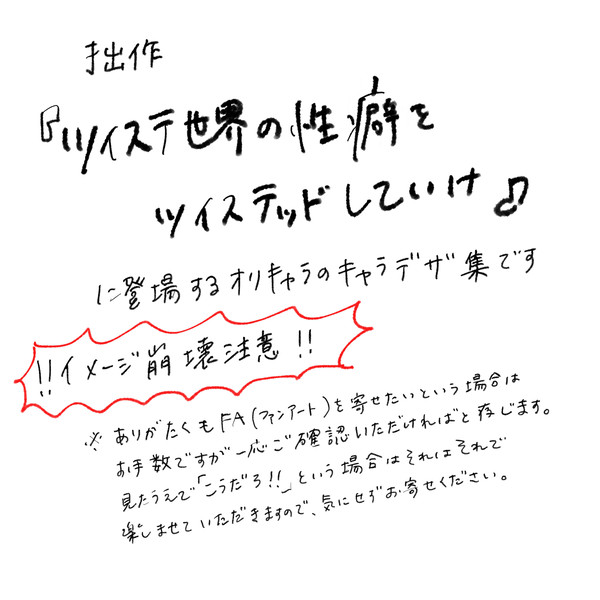 拙作
『ツイステ世界の性癖を
ツイステッドしていけ♪』
に登場するオリキャラのキャラデザ集です
!!イメージ崩壊注意!!
※ ありがたくもFA(ファンアート)を寄せたいという場合は
お手数ですが一応ご確認いただければと存じます。
見たうえで「こうだろ!!」という場合はそれはそれで
楽しませていただきますので、気にせずお寄せください。